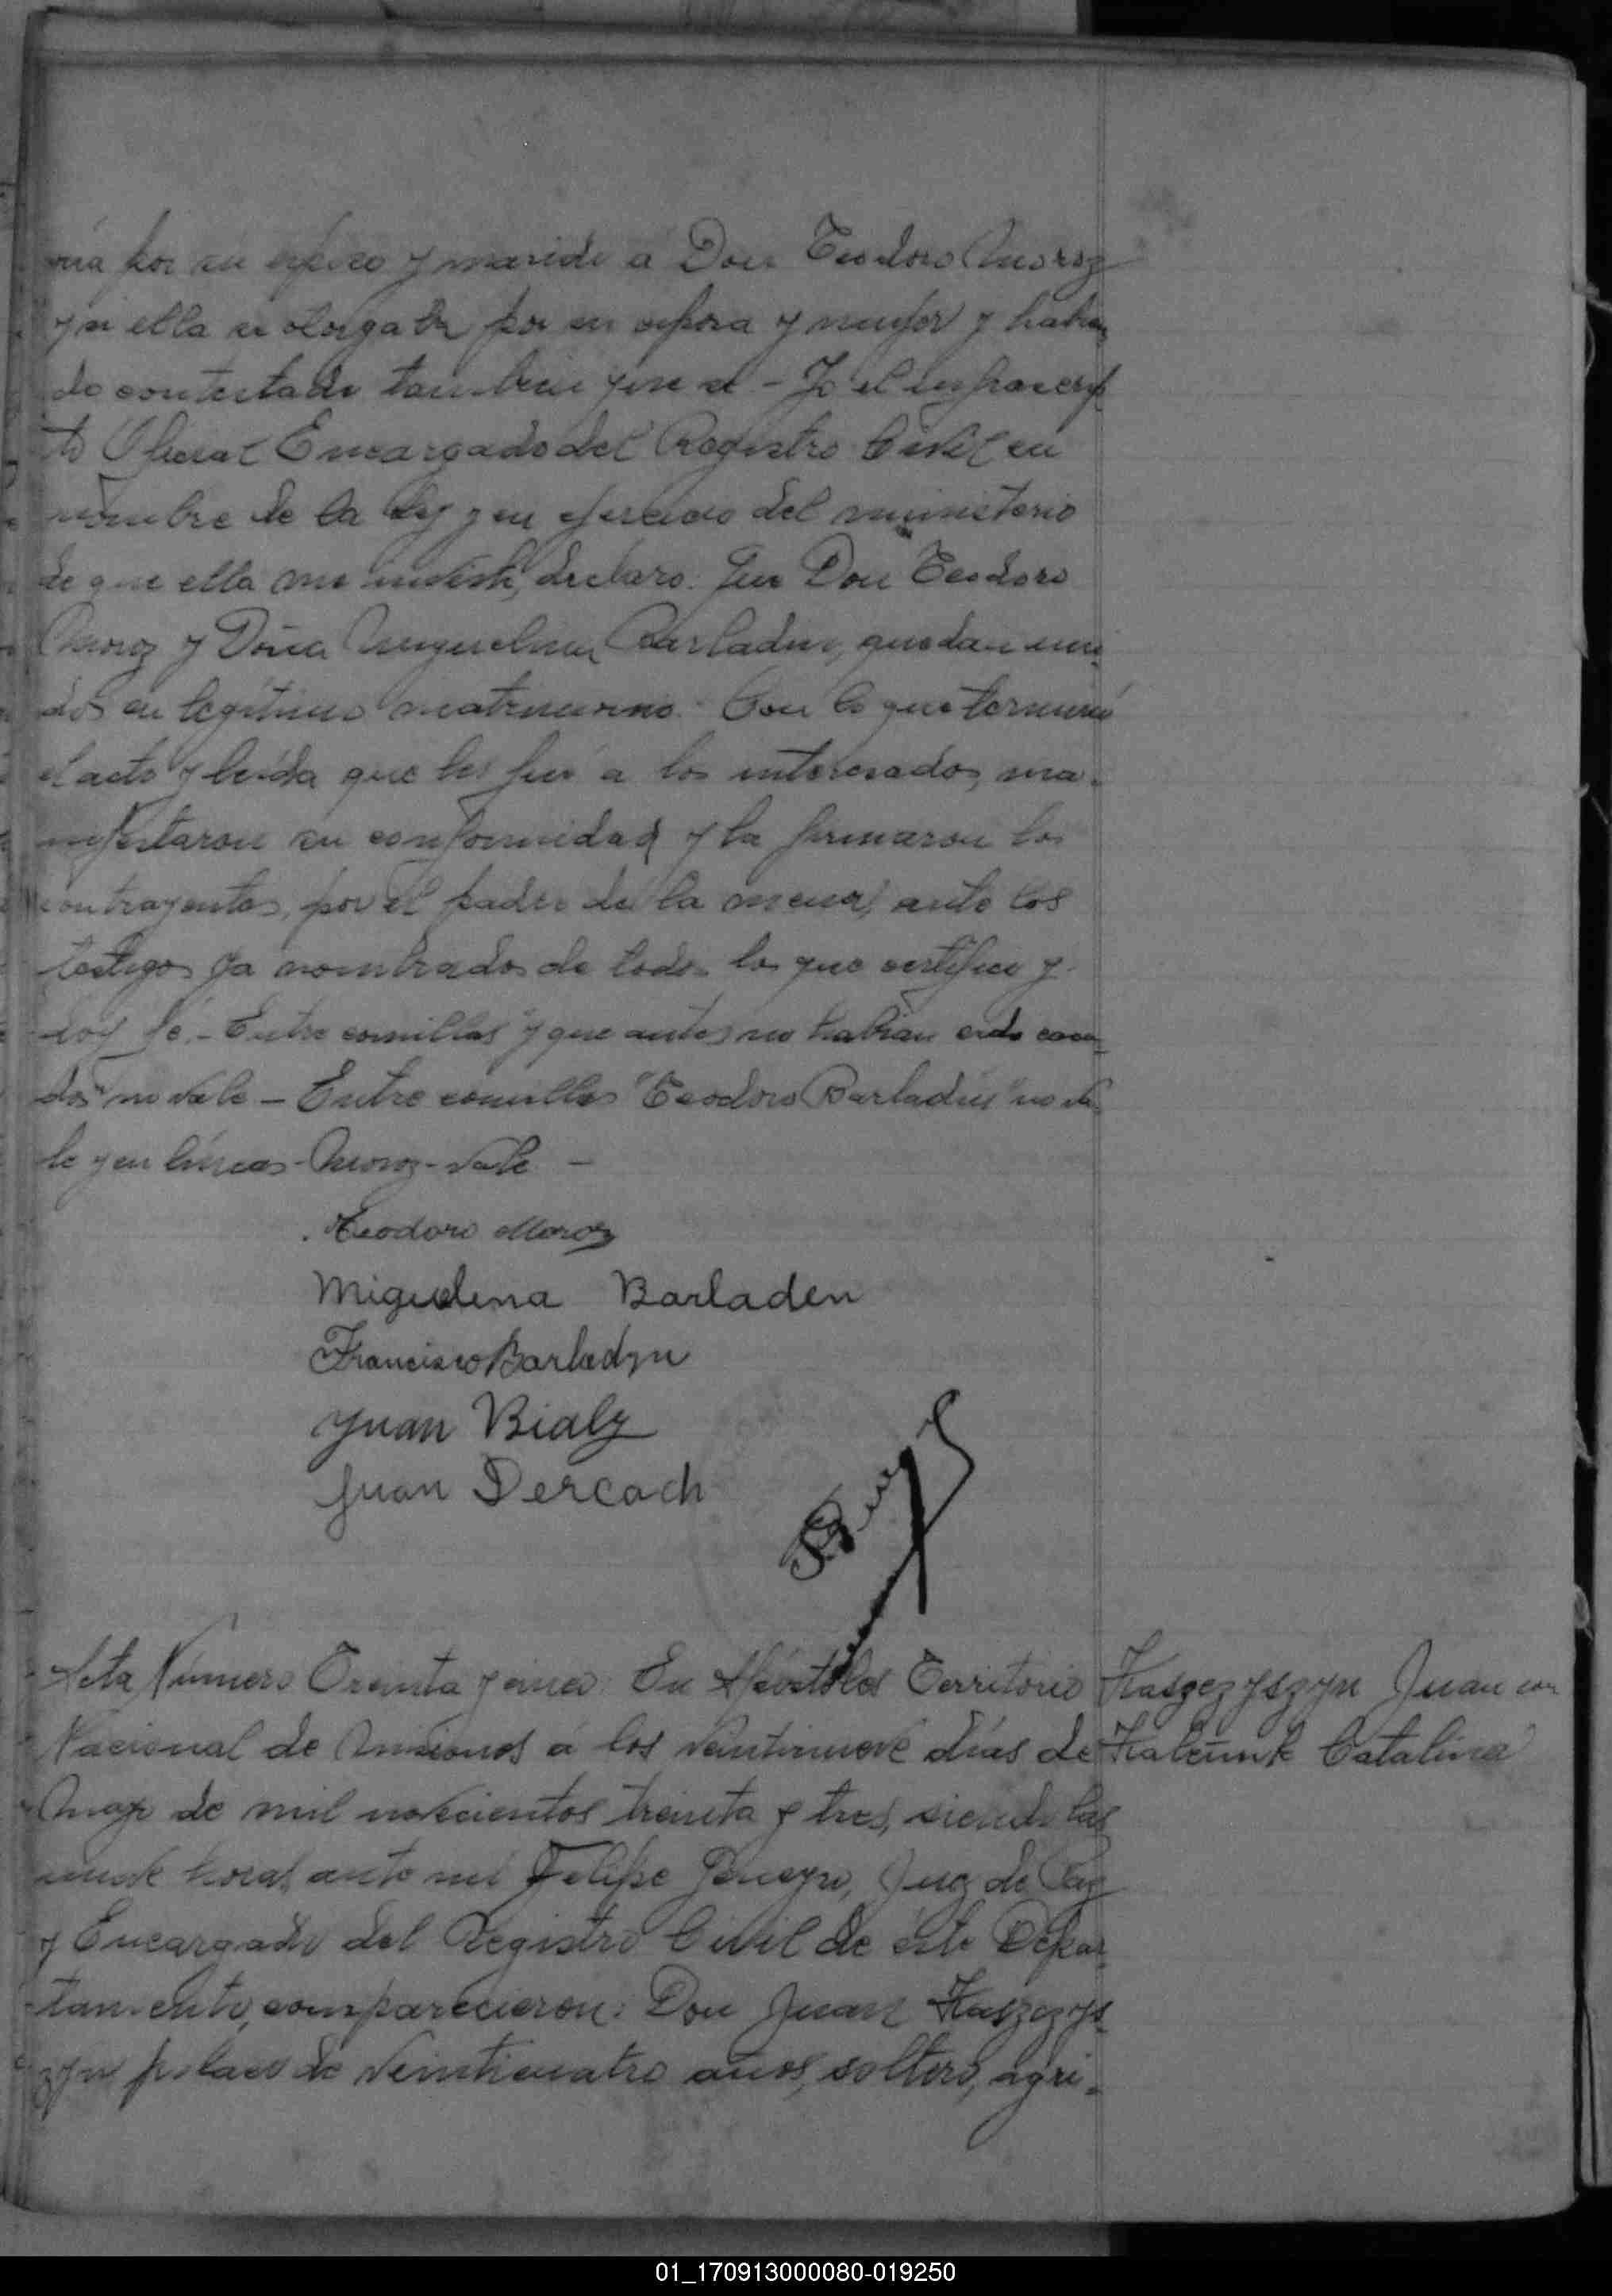 ria por su esposo y marido á Don Teodoro Moroz
y si ella se otorgaba por su esposa y mujer y habien
do contestado tambien que si - Yo el infrascrip
to Oficial Encargado del Registro Civil en
nombre de la Ley y en ejercicio del ministerio
de que ella me inviste, declaro: Que Don Teodoro
Moroz y Doña Miguelina Barladin, quedan uni
dos en legitimo matrimonio. Con lo que terminó
el acto y leída que les fué a los interesados, ma-
nifestaron su conformidad y la firmaron los
contrayentes, por el padre de la menor, ante los
testigos ya nombrados de todo lo que certifico y
doy fé. - Entre comillas "y que antes no habian sido casa-
dos" no vale - Entre comillas "Teodoro Barladin" no va
le y en líneas - Moroz - Vale -
Teodoro Moroz
Miguelina Barladen
Francisco Barladyn
Juan Bialy
Juan Dercach
Acta Número Treinta y cinco: En Apóstoles Territorio
Nacional de Misiones á los veintinueve días de
Mayo de mil novecientos treinta y tres, siendo las
nueve horas, ante mi Felipe Juez de Paz
y Encargado del Registro Civil de éste Depar
tamento, comparecieron: Don Juan Kaszczys
zyn polaco de veinticuatro años, soltero, agri-
Kaszczyszyn Juan con
Kalcunk Catalina
01_170913000080-019250